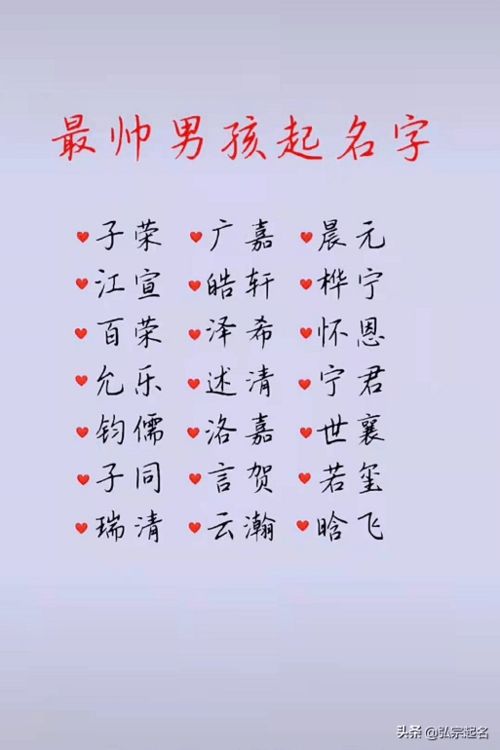 最帅男孩起名字
子荣 广嘉 晨元
江宣 皓轩 桦宁
百荣 泽希 怀恩
允乐 述清 宁君
钧儒 洛嘉 世襄
子同 言贺 若玺
瑞清 云瀚 晗飞
头条 @弘宗起名